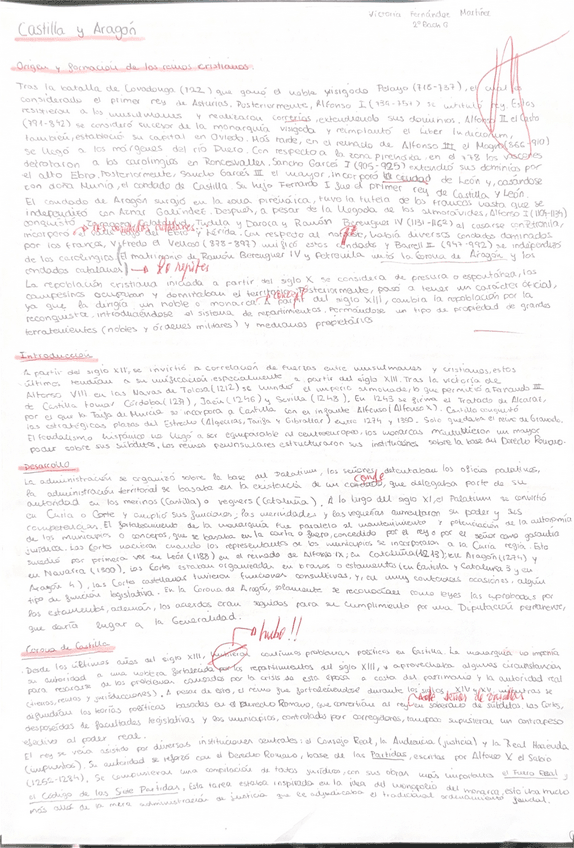 Victoria Fernández Martínez
2º Bach G
Castilla y Aragón
Origen y formación de los reinos cristianos
Tras la batalla de Covadonga (722) que ganó el noble visigodo Pelayo (718-737), el cual es
considerado el primer rey de Asturias. Posteriormente, Alfonso I (739-757) se intituló rey. Estos
resistieron a los musulmanes y realizaron correrías, extendiendo sus dominios. Alfonso II el Casto
(791-842) se consideró sucesor de la monarquía visigoda y reimplantó el Liber Iudiciorum,
también, estableció su capital en Oviedo. Más tarde, en el reinado de Alfonso III el Magno (866-910)
se llegó a los márgenes del río Duero. Con respecto a la zona pirenaica, en el 778 los vascones
derrotaron a los carolingios en Roncesvalles. Sancho Garcés I (905-925) extendió sus dominios por
el alto Ebro. Posteriormente, Sancho Garcés III el mayor, incorporó la ciudad de León y, casándose
con doña Munia, el condado de Castilla. Su hijo Fernando I fue el primer rey de Castilla y León.
El condado de Aragón surgió en la zona pirenaica, tuvo la tutela de los francos hasta que se
independizó con Aznar Galíndez. Después, a pesar de la llegada de los almorávides, Alfonso I (1104-1134)
conquistó Zaragoza, Calatayud, Tudela y Daroca y Ramón Berenguer IV (1131-1162) al casarse con Petronila,
incorporó y Lérida. Con respecto al noreste, había diversos condados dominados
por los francos, Wifredo el Velloso (878-897) unificó estos condados y Borrell II (947-992) se independizó
de los carolingios. El matrimonio de Ramón Berenguer IV y Petronila unió la Corona de Aragón y los
condados catalanes → lo repites
La repoblación cristiana iniciada a partir del siglo X se considera de presura o espontánea, los
campesinos ocupaban y dominaban el territorio. Posteriormente, pasó a tener un carácter oficial,
ya que la dirigía un noble o monarca. A partir del siglo XIII, cambia la repoblación por la
reconquista, introduciéndose el sistema de repartimientos. Formándose un tipo de propiedad de grandes
terratenientes (nobles y órdenes militares) y medianos propietarios
Introducción
A partir del siglo XII, se invirtió la correlación de fuerzas entre musulmanes y cristianos, estos
últimos tendían a su unificación especialmente a partir del siglo XIII. Tras la victoria de
Alfonso VIII en las Navas de Tolosa (1212) se hundió el imperio almohade, lo que permitió a Fernando III
de Castilla tomar Córdoba, Jaén (1246) y Sevilla (1248). En 1243 se firma el Tratado de Alcaraz,
por el que la Taifa de Murcia se incorpora a Castilla con el infante Alfonso (Alfonso X). Castilla conquistó
las estratégicas plazas del Estrecho (Algeciras, Tarifa y Gibraltar) entre 1274 y 1350. Solo quedaba el reino de Granada.
El feudalismo hispánico no llegó a ser equiparable al centroeuropeo, los monarcas mantuvieron un mayor
poder sobre sus súbditos. Los reinos peninsulares estructuraron sus instituciones sobre la base del Derecho Romano.
Desarrollo
La administración se organizó sobre la base del Palatium, los señores disfrutaban los oficios palatinos,
la administración territorial se basaba en la existencia de un conde, que delegaba parte de su
autoridad en los merinos (Castilla) o veguers (Cataluña). A lo largo del siglo XI, el Palatium se convirtió
en Curia o Corte y amplió sus funciones, las merindades y las veguerías aumentaron su poder y sus
competencias. El fortalecimiento de la monarquía fue paralelo al mantenimiento y potenciación de la autonomía
de los municipios o concejos, que se basaba en la carta o fuero, concedido por el rey o por el señor como garantía
jurídica. Las Cortes nacieron cuando los representantes de los municipios se incorporan a la Curia regia. Esto
sucedió por primera vez en León (1188) en el reinado de Alfonso IX; en Cataluña (1218); en Aragón (1274) y
en Navarra (1300), Las Cortes estaban organizadas en brazos o estamentos (en Castilla y Cataluña 3 y en
Aragón 4), las Cortes castellanas tuvieron funciones consultivas, y, en unas contadas ocasiones, algún
tipo de función legislativa. En la Corona de Aragón, solamente se reconocían como leyes las aprobadas por
los estamentos, además, los acuerdos eran seguidos para su cumplimiento por una Diputación permanente,
que daría lugar a la Generalidad.
→ hubo!!
Corona de Castilla
Desde los últimos años del siglo XIII, continuos problemas políticos en Castilla. La monarquía no imponía
su autoridad a una nobleza fortalecida por los repartimientos del siglo XIII, y aprovechaba algunas circunstancias
para resarcirse de los problemas causados por la crisis de esta época a costa del patrimonio y la autoridad real
(tierras, rentas y jurisdicciones). A pesar de esto, el reino fue fortaleciéndose durante los siglos XIV y XV, mientras se
difundían las teorías políticas basadas en el Derecho Romano, que convertían al rey en soberano de súbditos, las Cortes,
desposeídas de facultades legislativas y los municipios, controlado por corregidores, tampoco supusieron un contrapeso
efectivo al poder real.
El rey se veía asistido por diversas instituciones centrales: el Consejo Real, la Audiencia (justicia) y la Real Hacienda
(impuestos). Su autoridad se reforzó con el Derecho Romano, base de las Partidas, escritas por Alfonso X el Sabio
(1252-1284), Se compusieron una compilación de textos jurídicos, con sus obras más importantes el Fuero Real y
el Código de las Siete Partidas, Esta tarea estaba inspirada en la idea del monopolio del monarca, esto iba mucho
más allá de la mera administración de justicia que le adjudicaba el tradicional ordenamiento feudal.